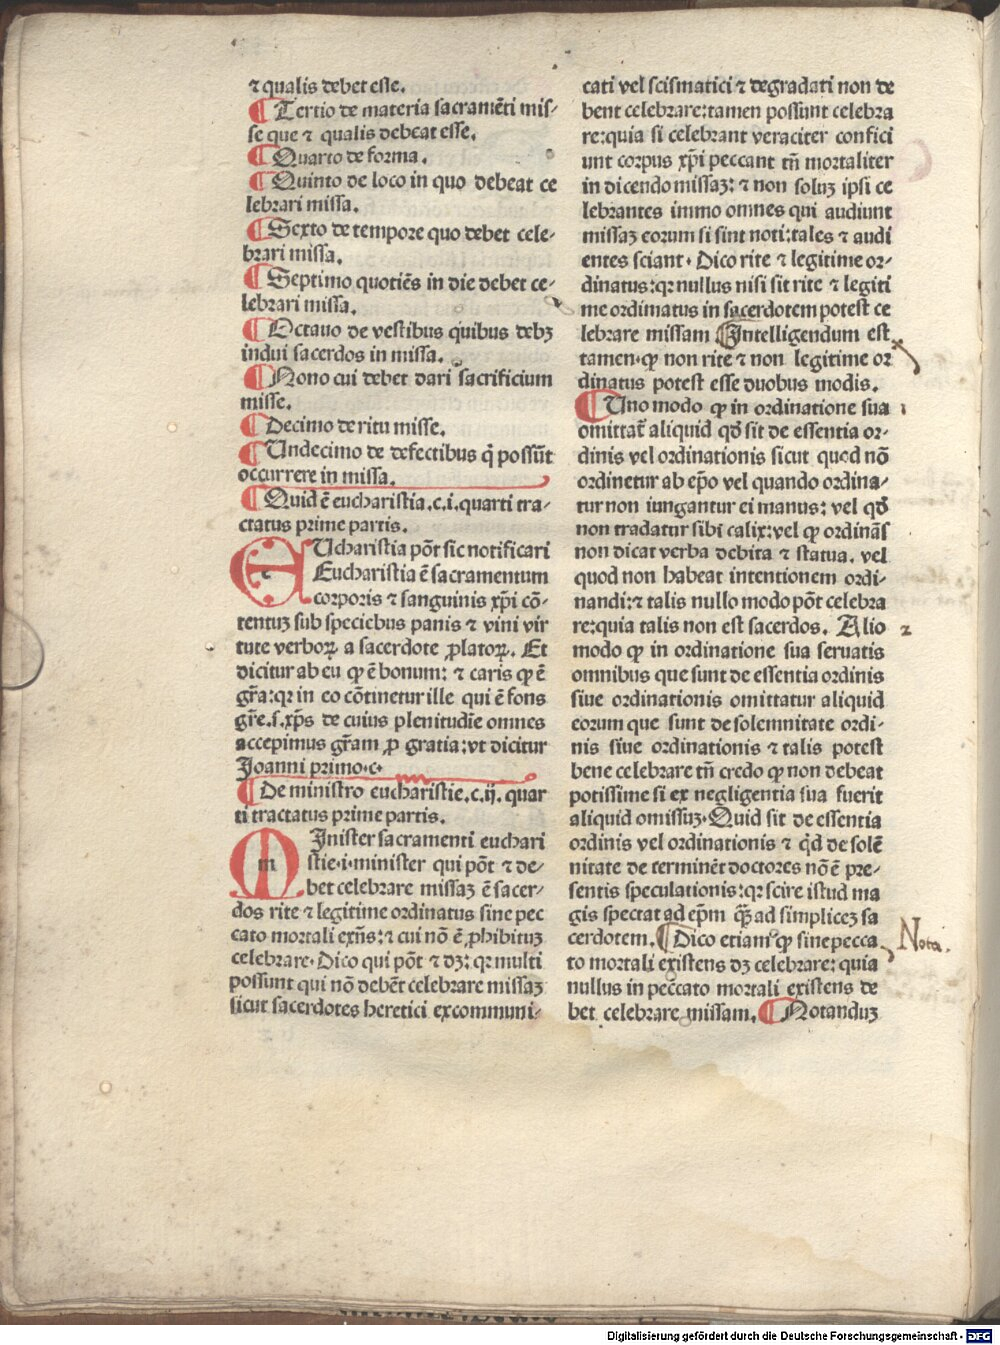 ⁊ qualis debet esse.
¶ Tertio de materia sacramēti mis-
se que ⁊ qualis debeat esse.
¶ Quarto de forma.
¶ Quinto de loco in quo debeat ce
lebrari missa.
¶ Sexto de tempore quo debet cele-
brari missa.
¶ Septimo quotiēs in die debet ce-
lebrari missa.
¶ Octauo de vestibus quibus debꝫ
indui sacerdos in missa.
¶ Nono cui debet dari sacrificium
misse.
¶ Decimo de ritu misse.
¶ Undecimo de defectibus q̇ possūt
occurrere in missa.
¶ Quid ē eucharistia.c.i.quarti tra-
ctatus prime partis.
EUcharistia pōt sic notificari
Eucharistia ē sacramentum
corporis ⁊ sanguinis xp̄i cō-
tentuꝫ sub speciebus panis ⁊ vini vir
tute verboꝝ a sacerdote ꝓlatoꝝ. Et
dicitur ab eu ꝙ ē bonum: ⁊ caris ꝙ ē
gr̄a:qꝛ in eo cōtinetur ille qui ē fons
gr̄e.s.xp̄s de cuius plenitudīe omnes
accepimus gr̄am ꝓ gratia:vt dicitur
Joanni primo.c.
¶ De ministro eucharistie.c.ij. quar
ti tractatus prime partis.
MInister sacramenti euchari
stie.i.minister qui pōt ⁊ de-
bet celebrare missaꝫ ē sacer-
dos rite ⁊ legitime ordinatus sine pec
cato mortali exn̄s:⁊ cui nō ē ꝓhibituꝫ
celebrare. Dico qui pōt ⁊ dꝫ:qꝛ multi
possunt qui nō debēt celebrare missaꝫ
sicut sacerdotes heretici excommuni-
cati vel scismatici ⁊ degradati non de
bent celebrare:tamen possunt celebra
re:quia si celebrant veraciter confici
unt corpus xp̄i peccant tn̄ mortaliter
in dicendo missaꝫ: ⁊ non soluꝫ ipsi ce
lebrantes immo omnes qui audiunt
missaꝫ eorum si sint noti:tales ⁊ audi
entes sciant. Dico rite ⁊ legitime or-
dinatus:qꝛ nullus nisi sit rite ⁊ legiti
me ordinatus in sacerdotem potest ce
lebrare missam ¶ Intelligendum est
tamen.ꝙ non rite ⁊ non legitime or
dinatus potest esse duobus modis.
¶ Uno modo ꝙ in ordinatione sua 1
omittat̄ aliquid qd̄ sit de essentia or-
dinis vel ordinationis sicut quod nō
ordinetur ab ep̄o vel quando ordina-
tur non iungantur ei manus: vel qd̄
non tradatur sibi calix:vel ꝙ ordinās
non dicat verba debita ⁊ statua. vel
quod non habeat intentionem ordi-
nandi:⁊ talis nullo modo pōt celebra
re:quia talis non est sacerdos. Alio 2
modo ꝙ in ordinatione sua seruatis
omnibus que sunt de essentia ordinis
siue ordinationis omittatur aliquid
eorum que sunt de solemnitate ordi-
nis siue ordinationis ⁊ talis potest
bene celebrare tn̄ credo ꝙ non debeat
potissime si ex negligentia sua fuerit
aliquid omissuꝫ. Quid sit de essentia
ordinis vel ordinationis ⁊ qd̄ de solē
nitate de terminēt doctores nō ē pre-
sentis speculationis:qꝛ scire istud ma
gis spectat ad ep̄m qꝫ̄ ad simpliceꝫ sa
cerdotem. ¶ Dico etiam ꝙ sine pecca Nota.
to mortali existens dꝫ celebrare: quia
nullus in peccato mortali existens de
bet celebrare missam. ¶ Notanduꝫ
Digitalisierung gefördert durch die Deutsche Forschungsgemeinschaft - DFG